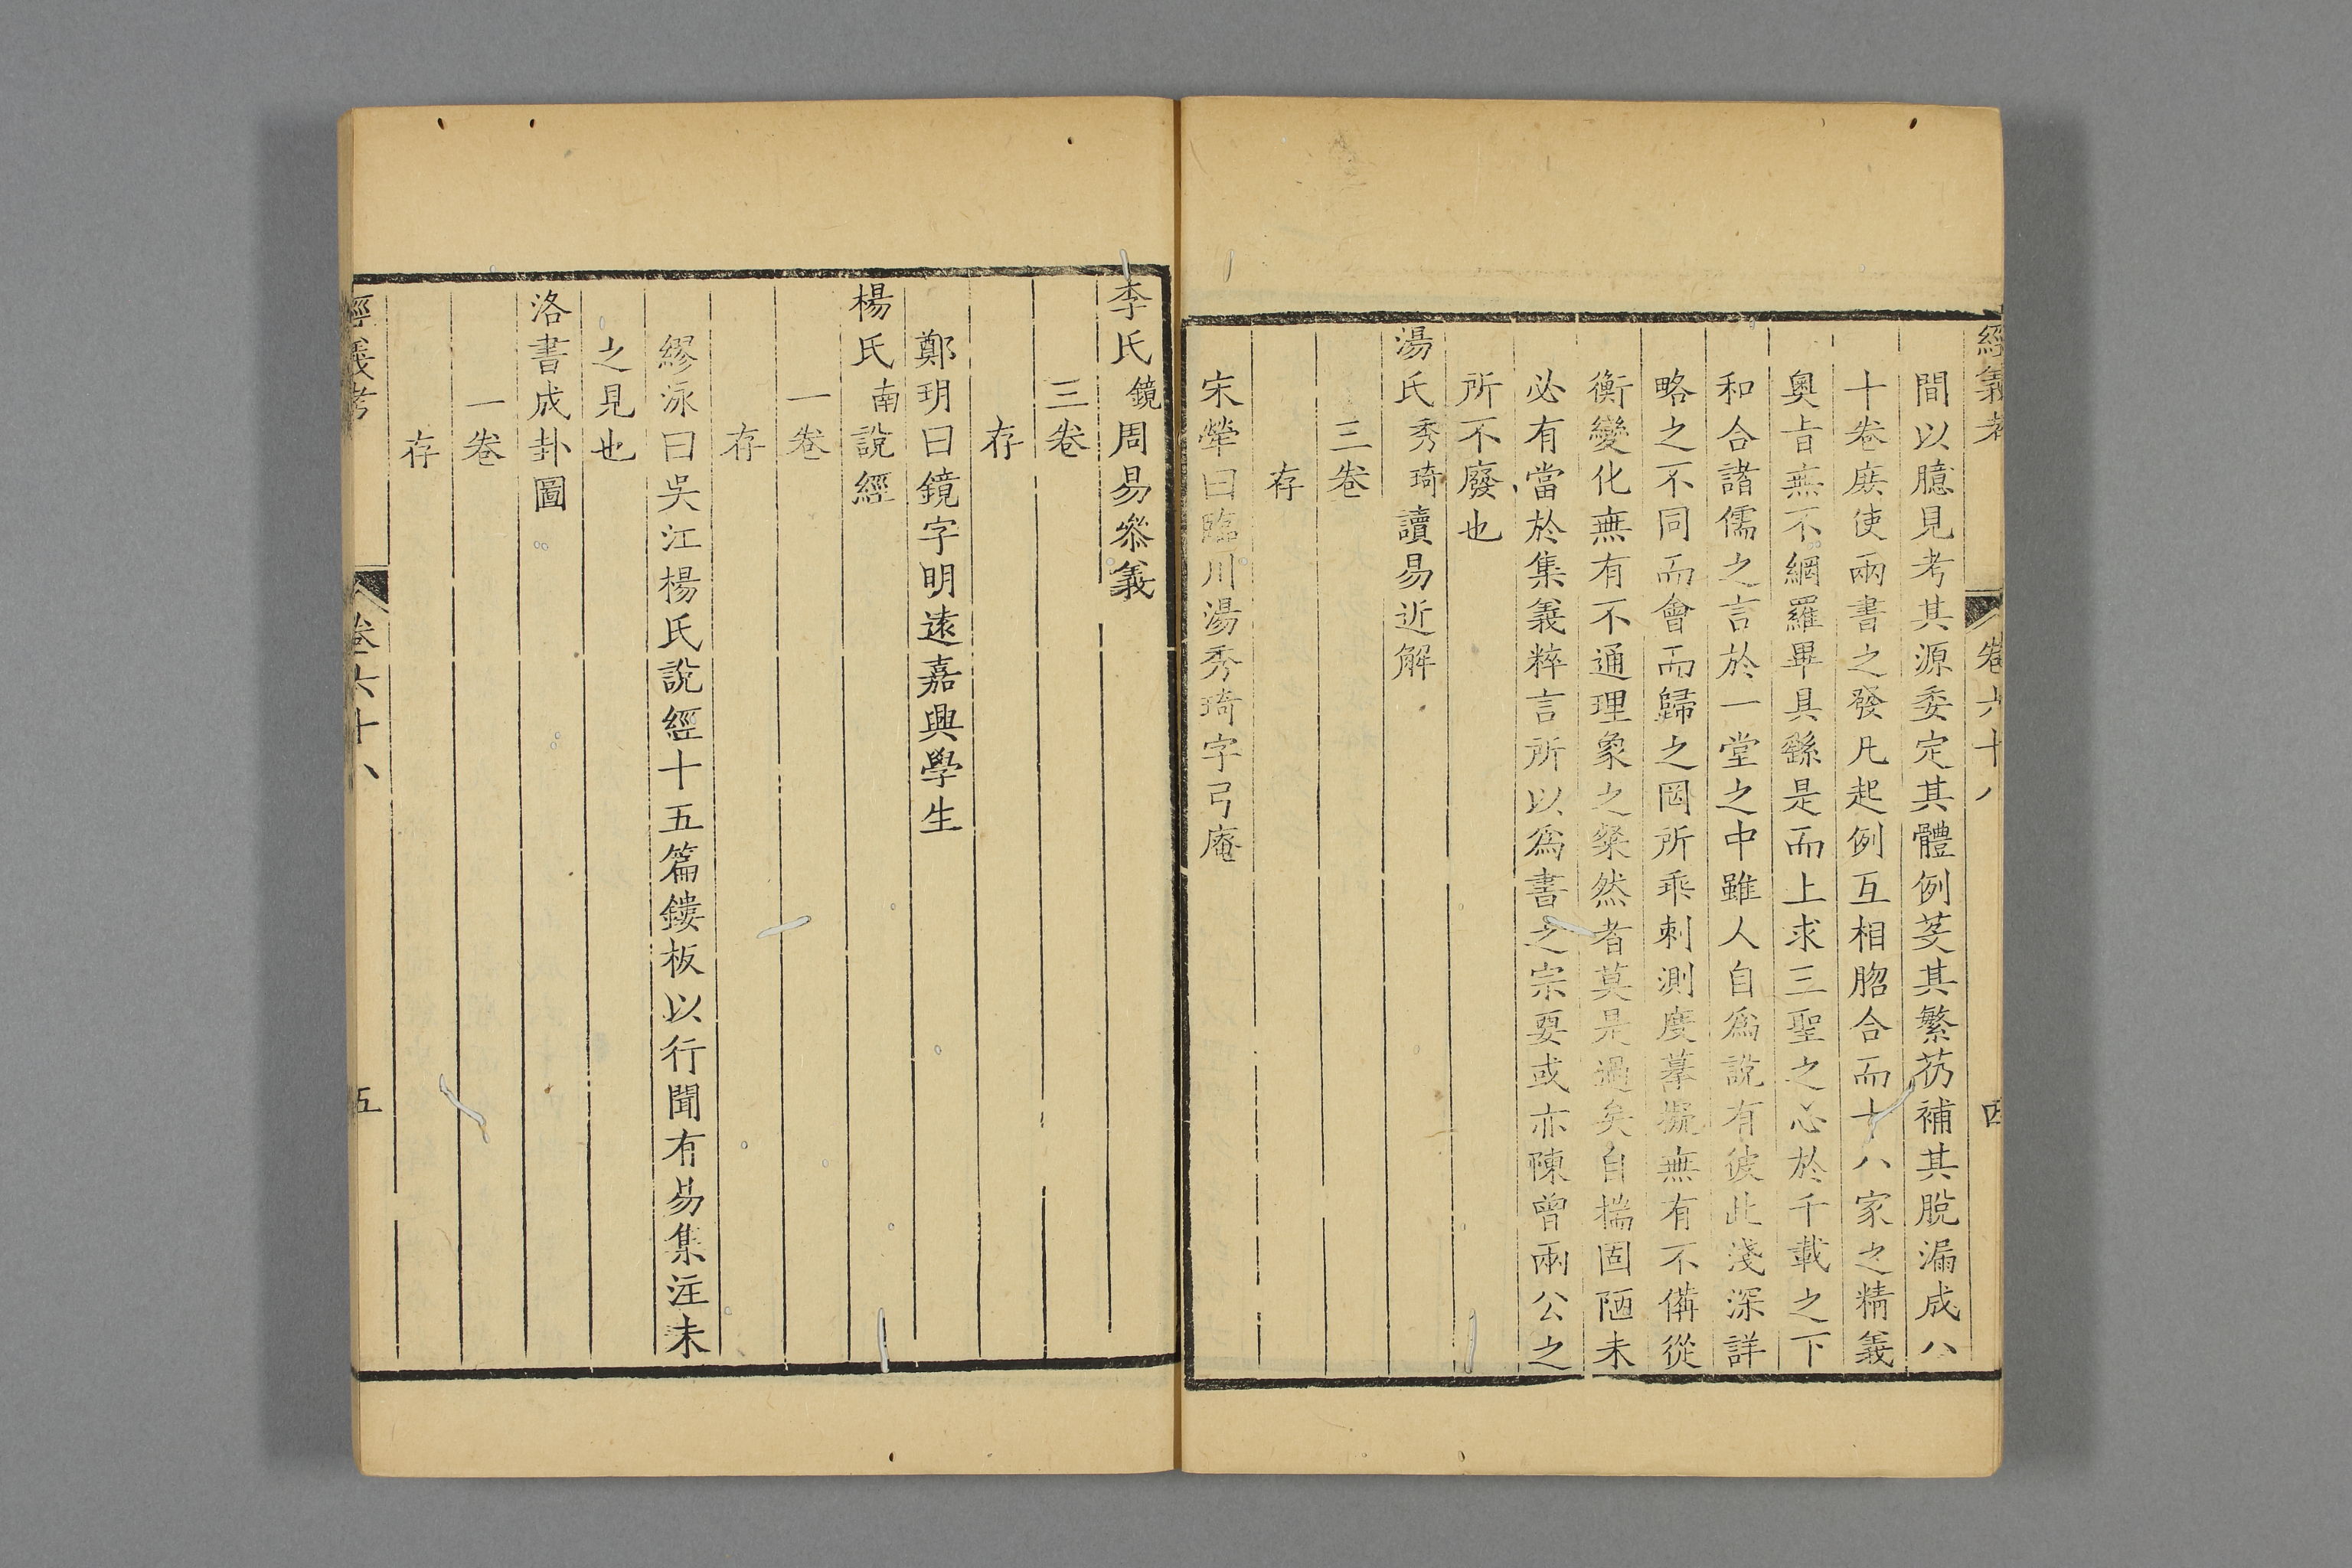 經義考 卷六十八 四
間以臆見考其源委定其體例芟其繁芿補其脫漏成八
十卷庻使兩書之發凡起例互相脗合而十八家之精義
奧旨無不網羅畢具繇是而上求三聖之心於千載之下
和合諸儒之言於一堂之中雖人自爲說有彼此淺深詳
略之不同而會而歸之罔所乖刺測度摹擬無有不備從
衡變化無有不通理象之粲然者莫是過矣自揣固陋未
必有當於集義粹言所以爲書之宗要或亦陳曾兩公之
所不廢也
湯氏秀琦讀易近解
三卷
存
宋犖曰臨川湯秀琦字弓庵
李氏鏡周易叅義
三卷
存
鄭玥曰鏡字明遠嘉興學生
楊氏南說經
一卷
存
繆泳曰吳江楊氏說經十五篇鏤板以行聞有易集注未
之見也
洛書成卦圖
一卷
存
經義考 卷六十八 五